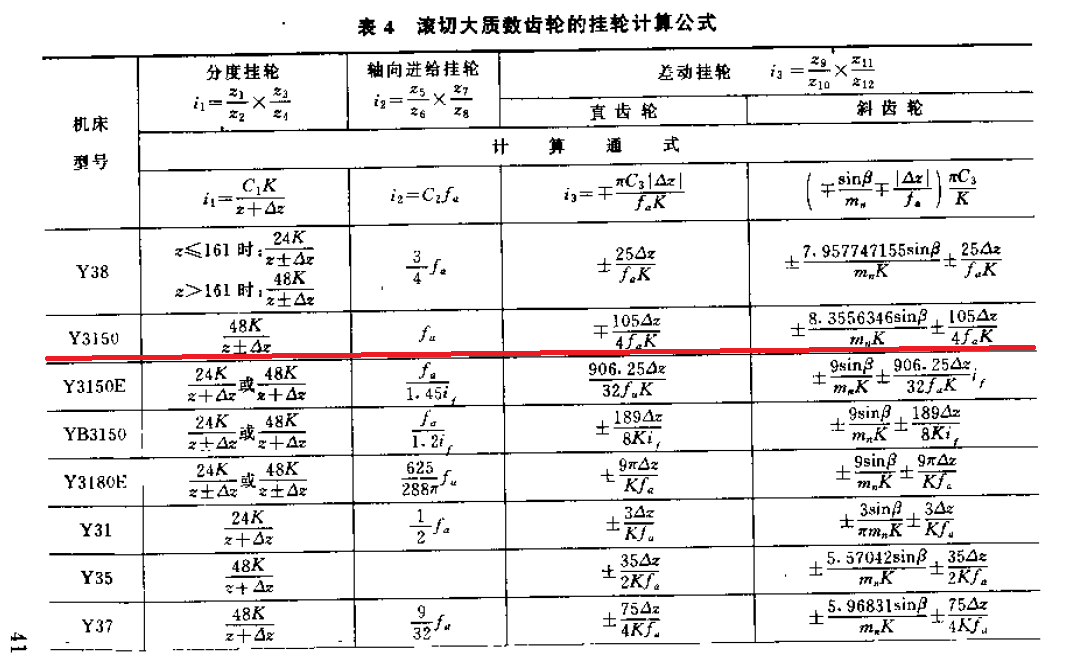 表 4 滚切大质数齿轮的挂轮计算公式
机床型号 分度挂轮 i₁=z₁/z₂×z₃/z₄ 轴向进给挂轮 i₂=z₅/z₆×z₇/z₈ 差动挂轮 i₃=z₉/z₁₀×z₁₁/z₁₂
直齿轮 斜齿轮
计算通式
i₁=C₁K/(z+Δz) i₂=C₂fₐ i₃=∓πC₃|Δz|/(fₐK) (∓sinβ/mₙ∓|Δz|/fₐ)πC₃/K
Y38 z≤161时:24K/(z±Δz) z>161时:48K/(z±Δz) 3/4 fₐ ±25Δz/(fₐK) ±7.957747155sinβ/(mₙK)±25Δz/(fₐK)
Y3150 48K/(z±Δz) fₐ ∓105Δz/(4fₐK) ±8.3556346sinβ/(mₙK)±105Δz/(4fₐK)
Y3150E 24K/(z+Δz)或48K/(z+Δz) fₐ/(1.45i_f) 906.25Δz/(32fₐK) ±9sinβ/(mₙK)±906.25Δz/(32fₐK) i_f
YB3150 24K/(z±Δz)或48K/(z+Δz) fₐ/(1.2i_f) ±189Δz/(8Ki_f) ±9sinβ/(mₙK)±189Δz/(8Ki_f)
Y3180E 24K/(z±Δz)或48K/(z±Δz) 625/(288π) fₐ ±9πΔz/(Kfₐ) ±9sinβ/(mₙK)±9πΔz/(Kfₐ)
Y31 24K/(z+Δz) 1/2 fₐ ±3Δz/(Kfₐ) ±3sinβ/(πmₙK)±3Δz/(Kfₐ)
Y35 48K/(z+Δz) ±35Δz/(2Kfₐ) ±5.57042sinβ/(mₙK)±35Δz/(2Kfₐ)
Y37 48K/(z+Δz) 9/32 fₐ ±75Δz/(4Kfₐ) ±5.96831sinβ/(mₙK)±75Δz/(4Kfₐ)
41